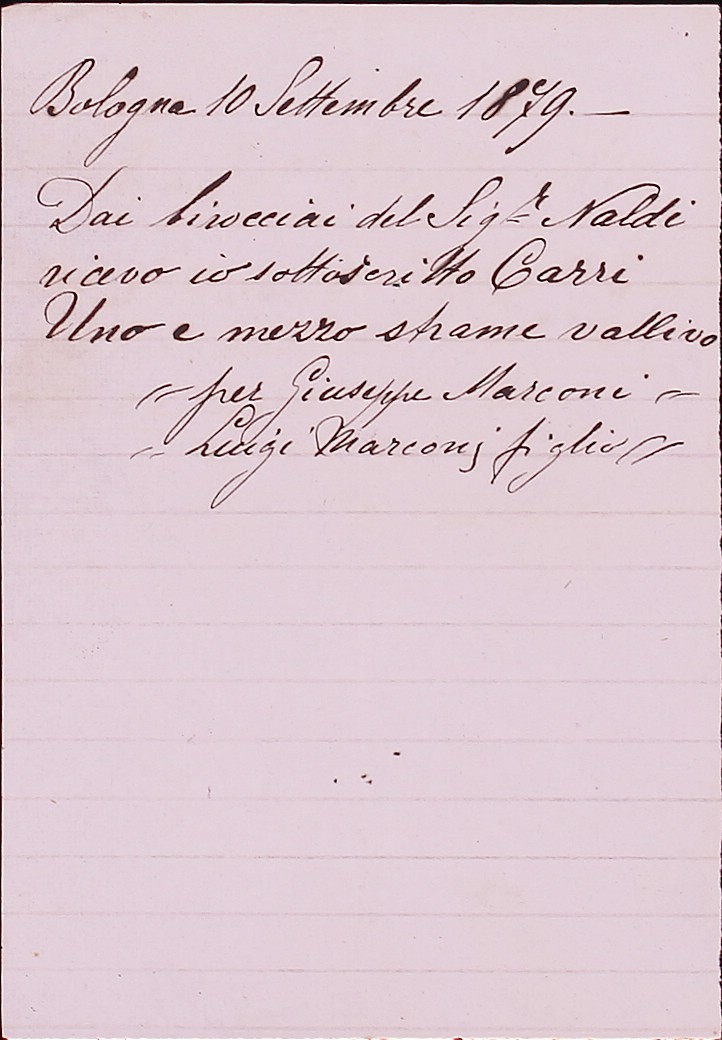 Bologna 10 Settembre 1879. —
Dai birocciai del Sig.r Naldi
ricevo io sottoscritto Carri
Uno e mezzo strame vallivo
〃 per Giuseppe Marconi 〃
〃 Luigi Marconj figlio 〃